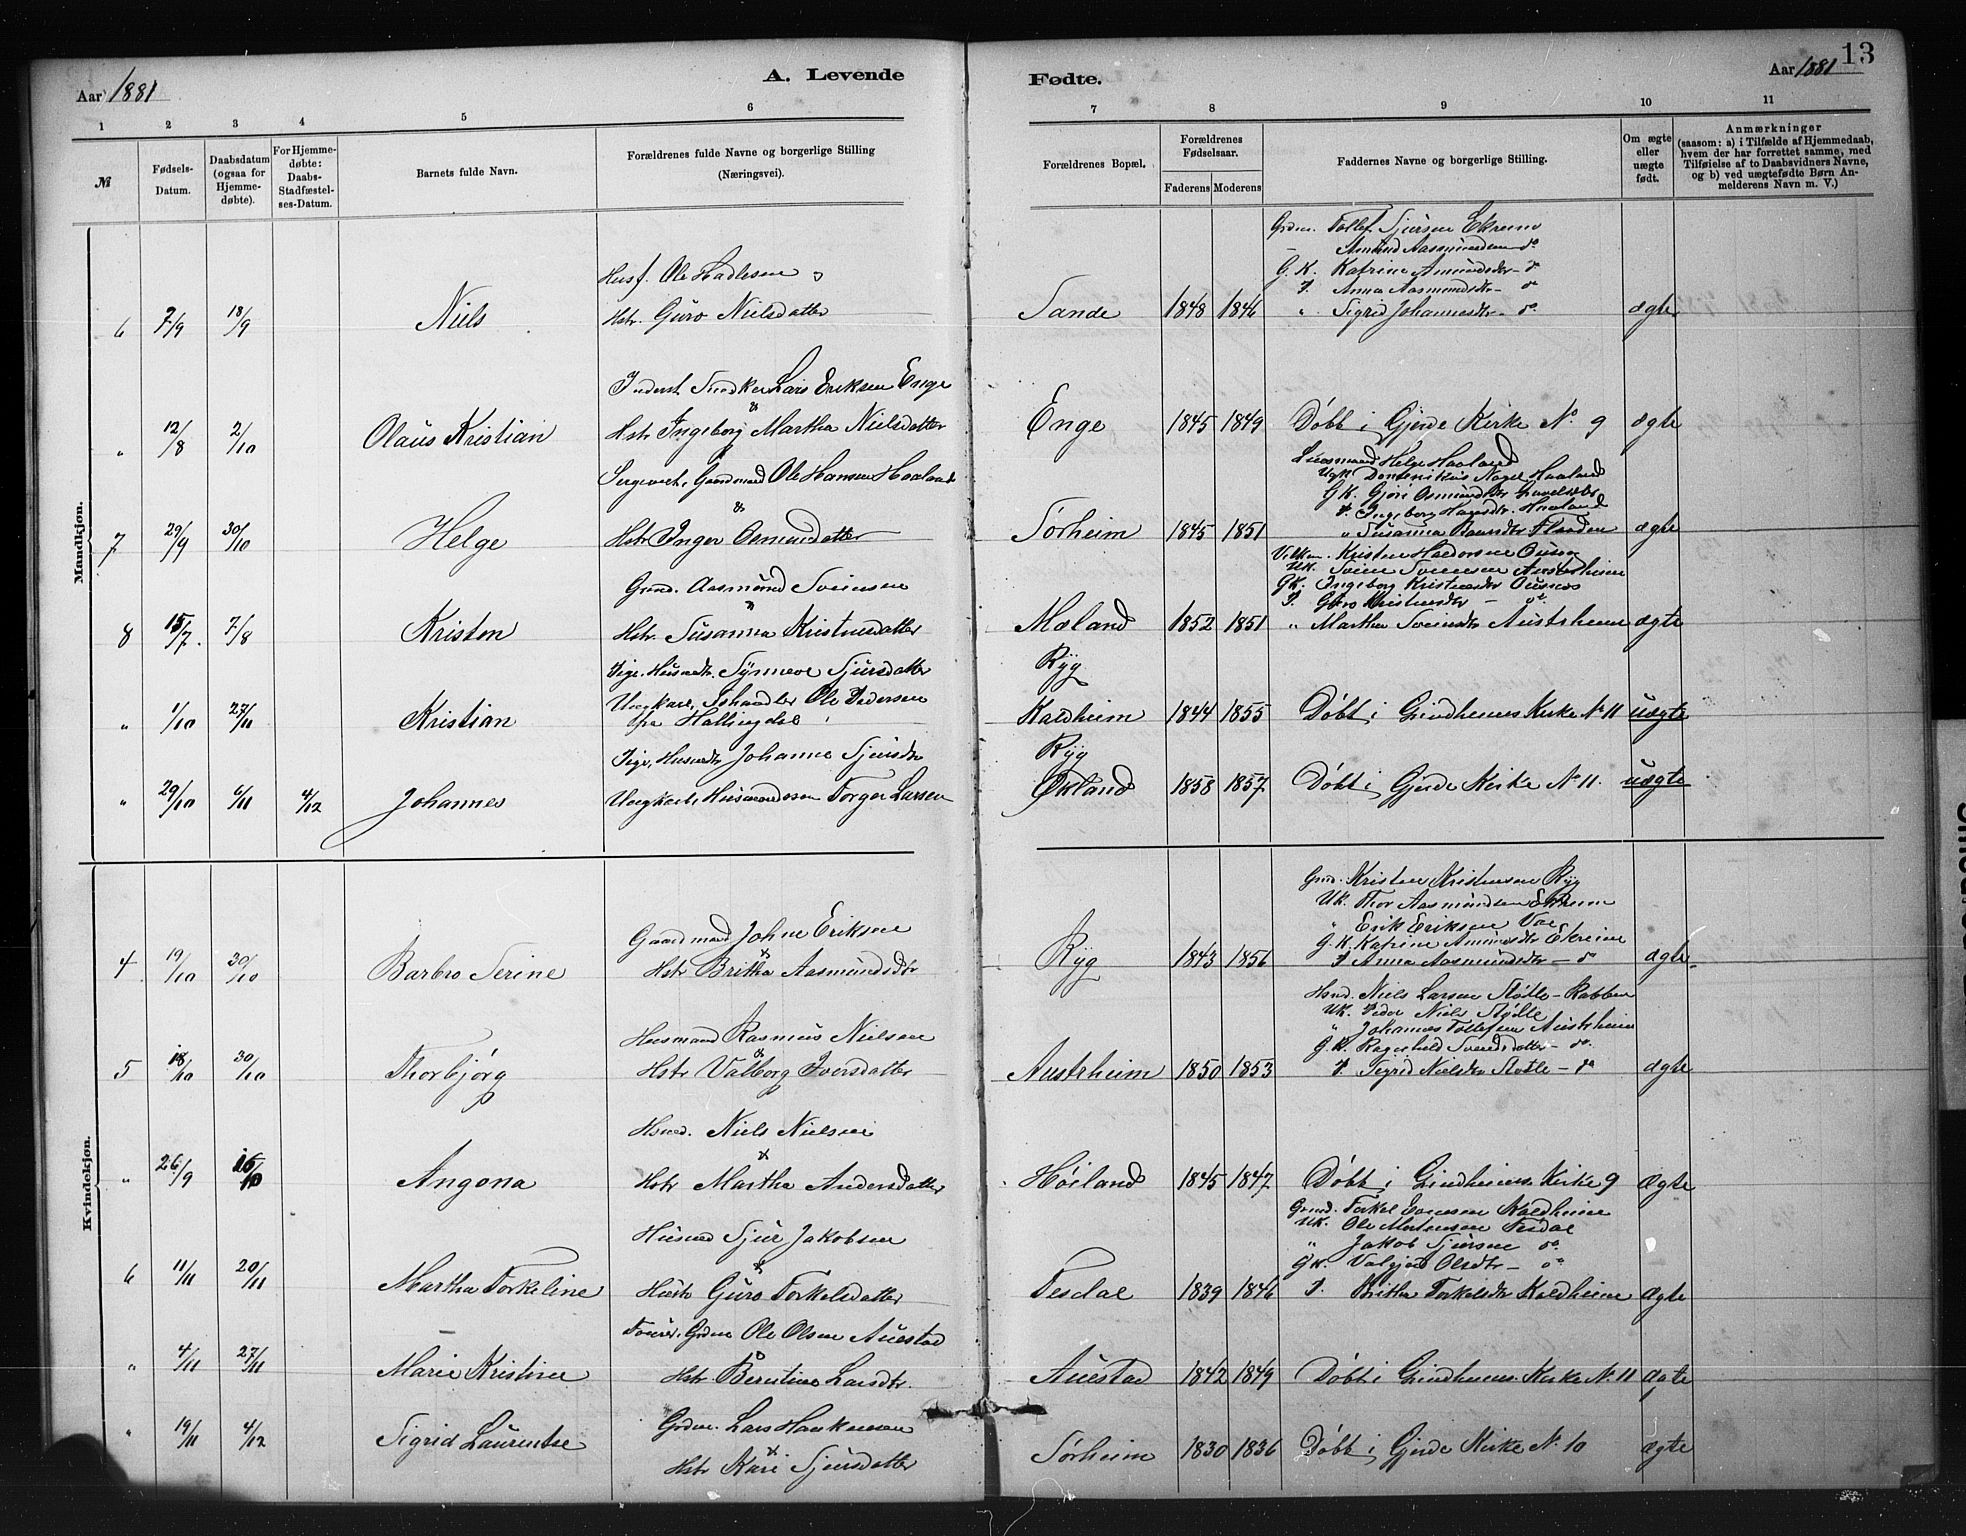 Aar 1881
A. Levende
Fødte.
Aar 1881
13
1 2 3 4 5 6 7 8 9 10 11
№
Fødsels-Datum.
Daabsdatum (ogsaa for Hjemme-døbte).
For Hjemme-døbte: Daabs-Stadfæstel-ses-Datum.
Barnets fulde Navn.
Forældrenes fulde Navne og borgerlige Stilling (Næringsvei).
Forældrenes Bopæl.
Forældrenes Fødselsaar.
Faderens Moderens
Faddernes Navne og borgerlige Stilling.
Om ægte eller uægte født.
Anmærkninger (saasom: a) i Tilfælde af Hjemmedaab, hvem der har forrettet samme, med Tilføielse af to Daabsvidners Navne, og b) ved uægtefødte Børn An-melderens Navn m. V.)
Mandkjøn.
Husf. Ole Hadlesen
Grdm. Tollef Sjursen Ekrem
Amund Aasmundsen do
G. K. Katrine Amundsdtr - do
P. Anna Aasmundsdtr - do
6 7/9 18/9 Niels Hstr. Guro Nielsdatter Sande 1848 1846 " Sigrid Johannesdtr - do ægte
Inderst Snedker Lars Eriksen Enge
&
" 12/8 2/10 Olaus Kristian Hstr Ingeborg Martha Nielsdatter Enge 1845 1849 Døbt i Gjerde Kirke No 9 ægte
Gaardmand Ole Hansen Haaland
&
Lensmand Helge Haaland
Ugk. Nagel Haaland
G.K. Gjøri Osmundsdtr
P. Ingeborg Hansdtr. Haaland
7 29/9 30/10 Helge Hstr Inger Osmundatter Sørheim 1845 1851 " Susanna Flaaden ægte
Grmd. Aasmund Sveinsen
Kristen Haldorsen
UK. Svein Sveinsen Austrheim
GK. Ingeborg Kristensdtr Ousnes
P. Guro Kristensdtr - do
8 15/7. 7/8 Kristen Hstr. Susanna Kristensdatter Moland 1852 1851 " Martha Sveinsdtr Austrheim ægte
Pige, Husmdtr. Synneve Sjursdatter
Ryg
Ungkarl, Ole Pedersen
" 1/10 27/11 Kristian fra Hallingdal Kaldheim 1844 1855 Døbt i Grindheims Kirke No 11 uægte
Pige, Husmdtr Johanne Sjursdtr
Ryg
" 29/10 6/11 4/12 Johannes Ungkarl, Husmandssøn Torger Larsen Økland 1858 1857 Døbt i Gjerde Kirke No 11. uægte
Kvindekjøn.
Gaardmand Johne Eriksen
&
Grmd. Kristen Kristensen Ryg
UK. Thor Aasmundsen Ekrem
" Erik Eriksen Vae
G. K. Katrine Amundsdtr Ekreim
4 19/10 30/10 Barbro Serine Hstr Britha Aasmundsdtr Ryg 1843 1856 P Anna Aasmundsdtr - do ægte
Husmand Rasmus Nielsen
&
Hsmd. Niels Larsen Støtle - Rabben
UK. Peder Niels Støtle
" Johannes Tollefsen Austrheim
G.K. Ragnhild Svendsdatter - do.
5 18/10 30/10 Thorbjørg Hstr Valborg Iversdatter Austrheim 1850 1853 P. Sigrid Nielsdtr Støtle - do ægte
Hsmd. Niels Nielsen
&
" 26/9 16/10 Angona Hstr Martha Andersdatter Høiland 1845 1847 Døbt i Grindheims Kirke 9 Ægte
Husmd Sjur Jakobsen
&
Grmd. Torkel Kaldheim
UK. Ole Mortensen Tesdal
" Jakob Sjursen do
GK. Valgjer Olsdtr - do
6 11/11 20/11 Martha Torkeline Hustr Guro Torkelsdatter Tesdal 1839 1846 P. Britha Torkelsdtr Kaldheim Ægte
Grdm Ole Olsen Auestad
&
" 4/11 27/11 Marie Kristine Hstr Berntine Larsdtr. Auestad 1842 1849 Døbt i Grindheims Kirke No 11 ægte
Grdm. Lars Haakensen
&
" 19/11 4/12 Sigrid Laurentse Hstr Kari Sjursdatter Sørheim 1830 1836 Døbt i Gjerde Kirke No 10 ægte